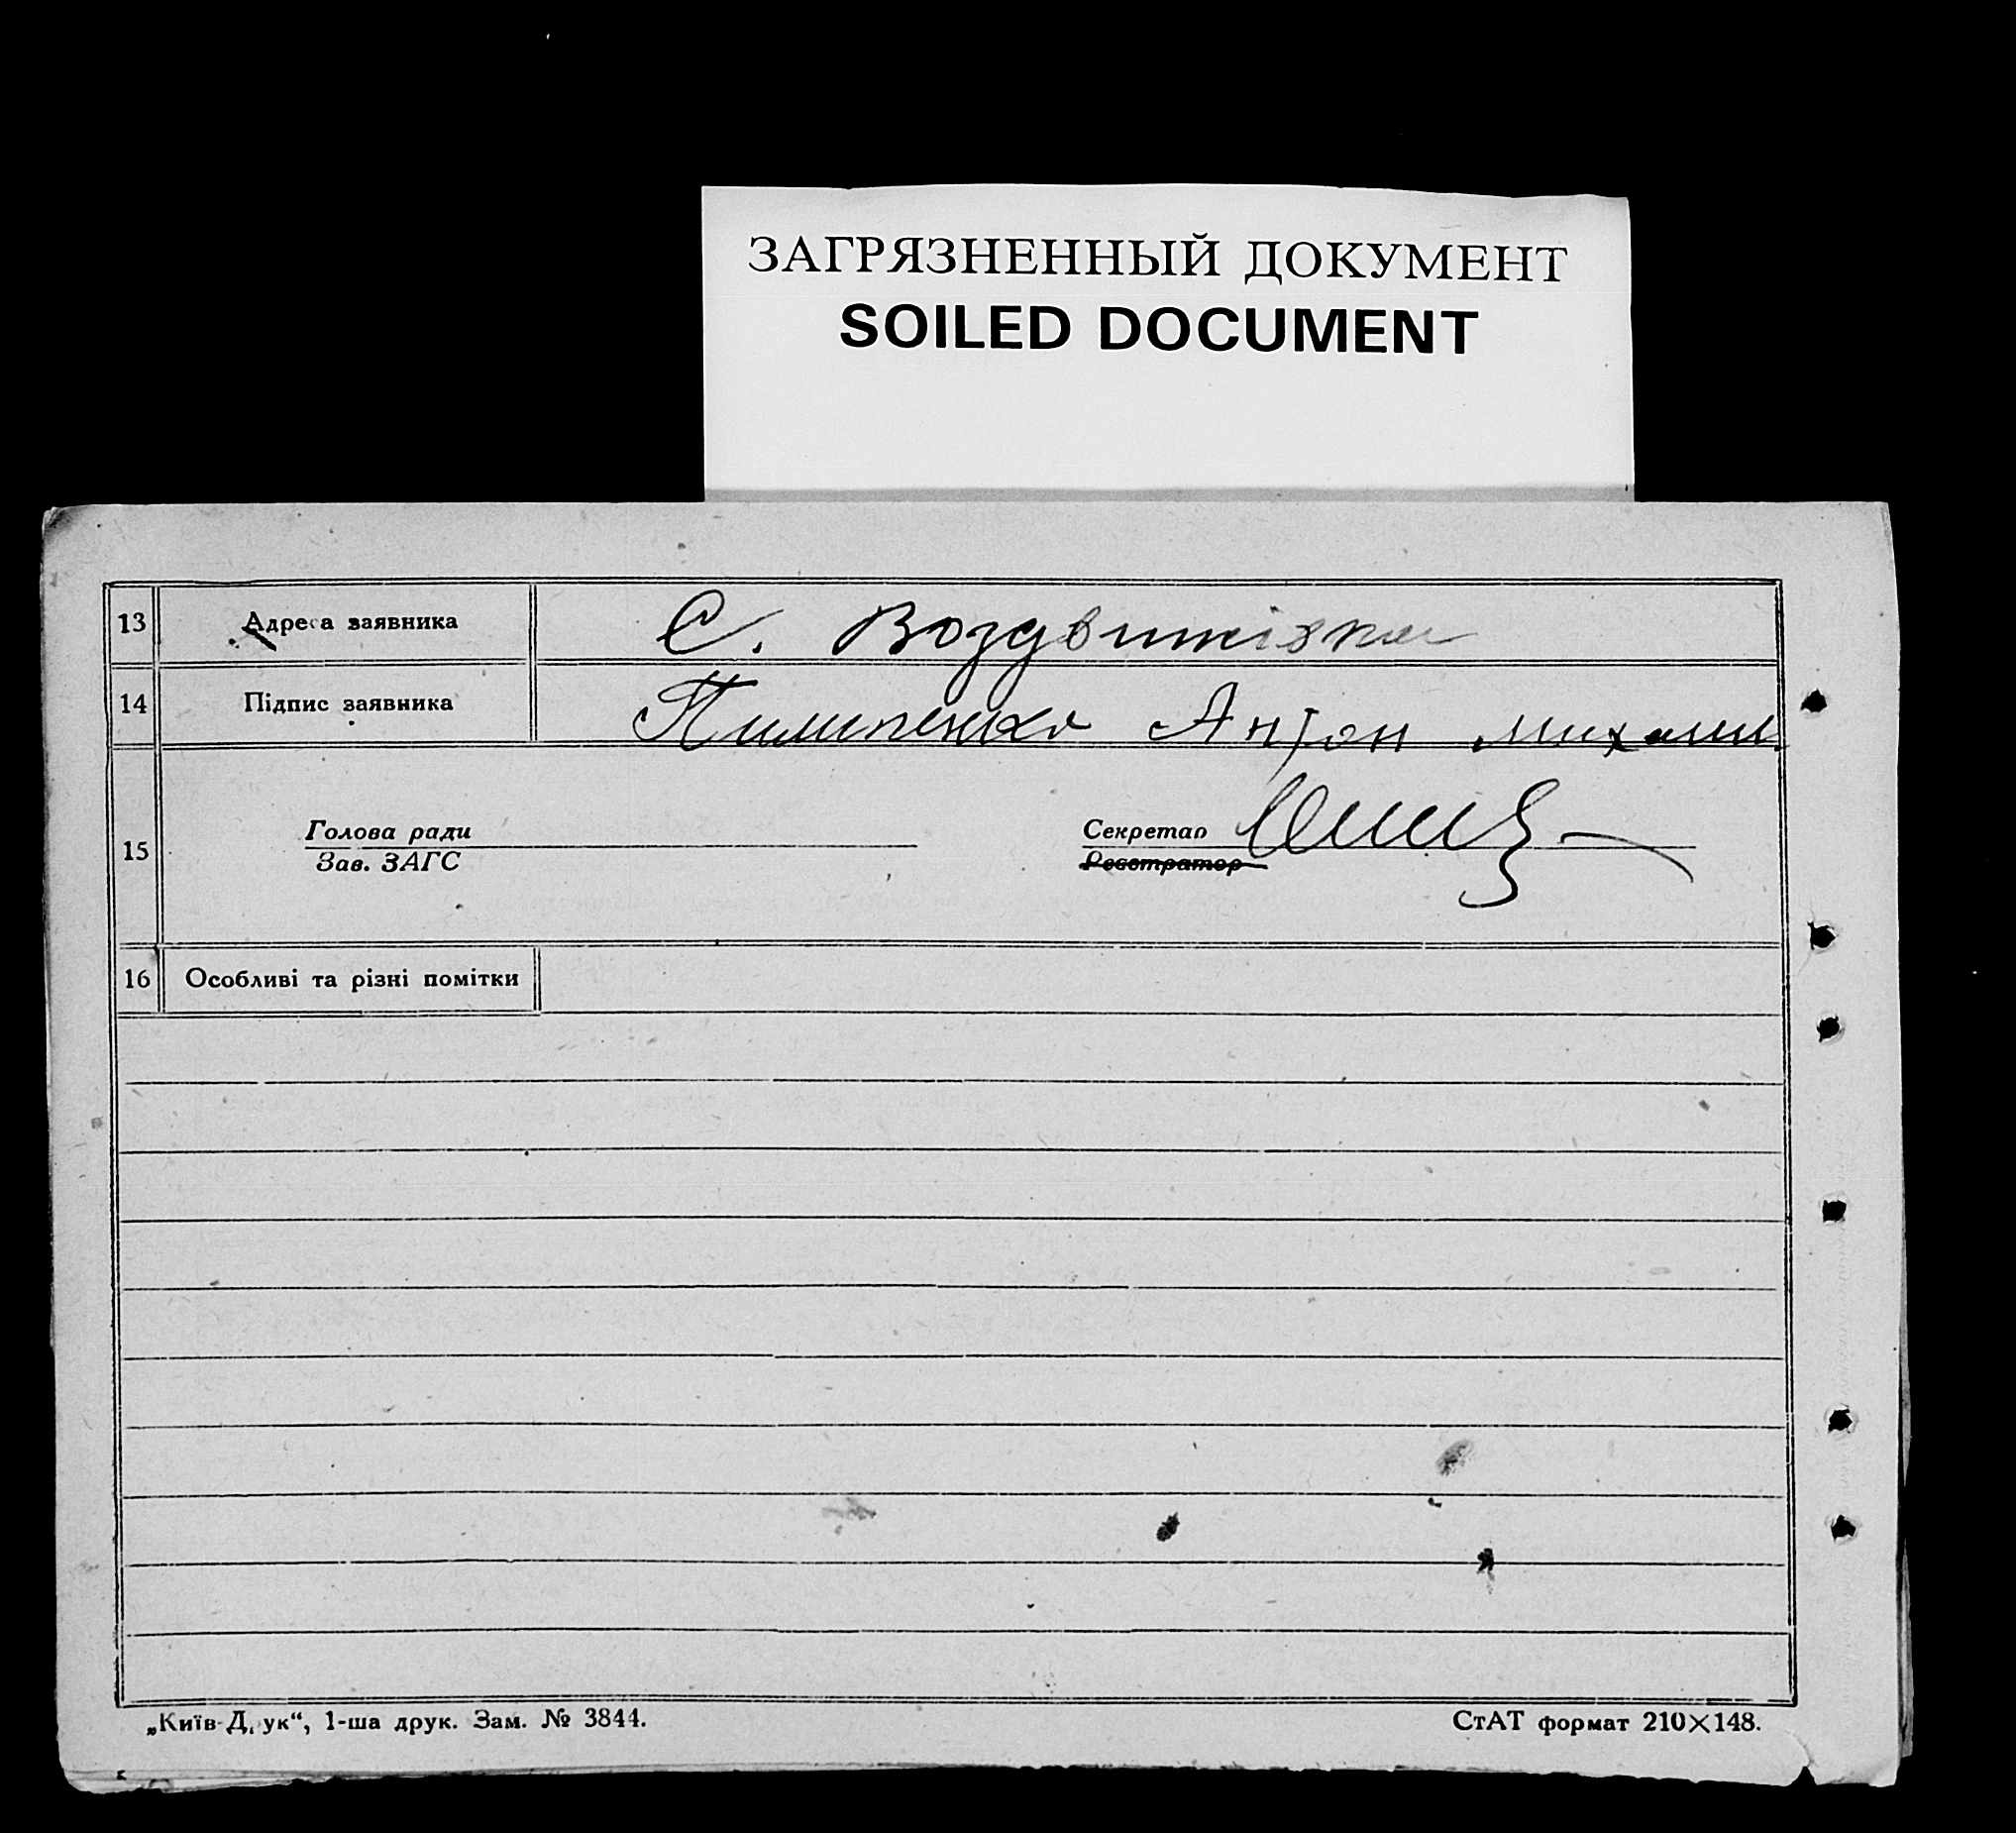 ЗАГРЯЗНЕННЫЙ ДОКУМЕНТ
SOILED DOCUMENT
13 Адреса заявника С. Воздвижівка
14 Підпис заявника Пилипенко Антон михаил.
15 Голова ради Секретар
Зав. ЗАГС Реєстратор
16 Особливі та різні помітки
„Київ-Друк“, 1-ша друк. Зам. № 3844. СтАТ формат 210×148.